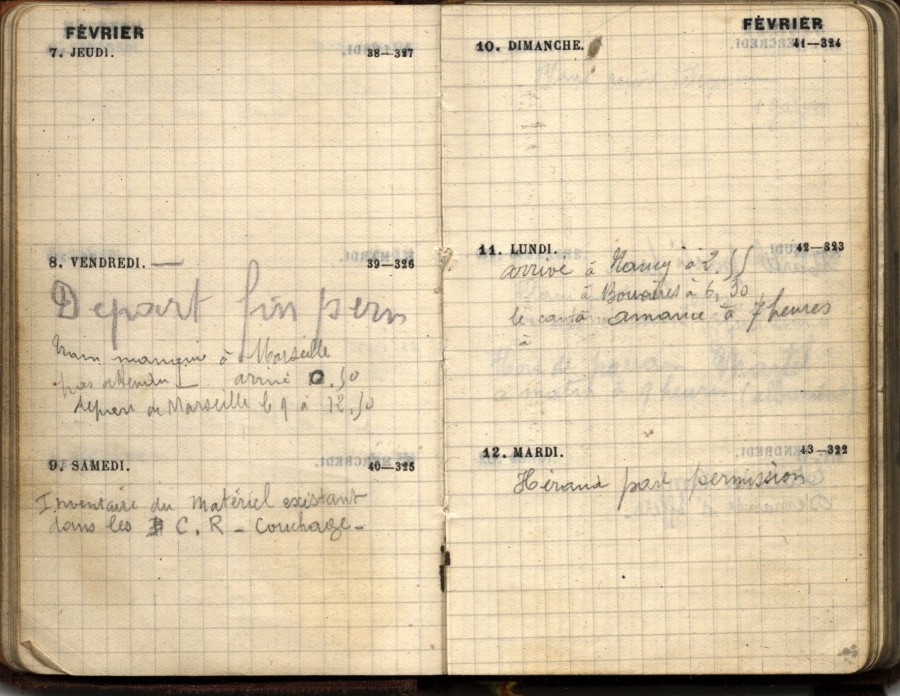 FÉVRIER
7. JEUDI. 38—327
8. VENDREDI. — 39—326
Depart fin perm
train manqué à Marseille
pas attendu — arrivé 0.50
depart de Marseille le 9 à 12.50
9. SAMEDI. 40—325
Inventaire du Matériel existant
dans les C. R - Couchage -
FÉVRIER
10. DIMANCHE. 41—324
11. LUNDI. 42—323
arrivé à Nancy à 2.55
à Bouxières à 6,30
le amance à 7 heures
à
12. MARDI. 43—322
Héraud part permission